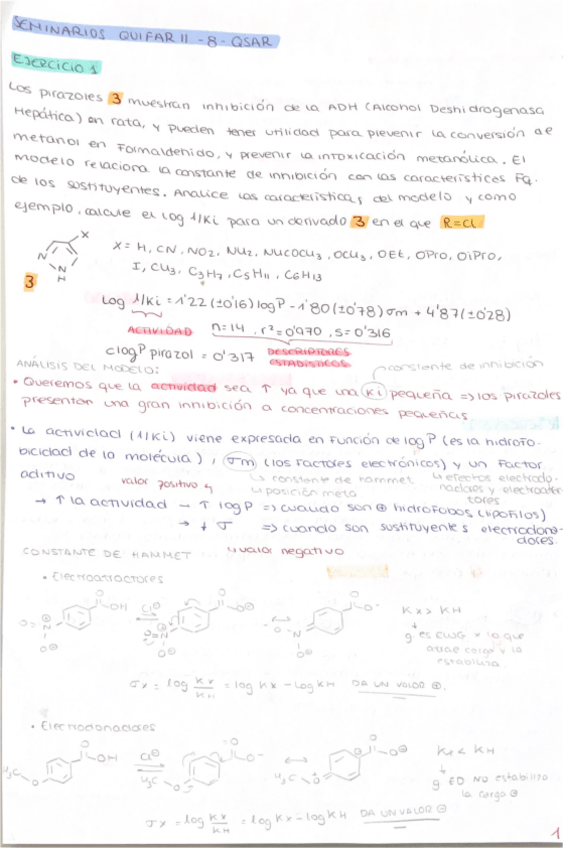 SEMINARIOS QUIFAR II - 8 - QSAR
EJERCICIO 1
Los pirazoles 3 muestran inhibición de la ADH (Alcohol Deshidrogenasa
Hepática) en rata, y pueden tener utilidad para prevenir la conversión de
metanol en Formaldehido, y prevenir la intoxicación metanólica. El
modelo relaciona la constante de inhibición con las características Fq.
de los sustituyentes. Analice las características del modelo y como
ejemplo, calcule el log 1/Ki para un derivado 3 en el que R=Cl
X
N
N
H
3
X = H, CN, NO2, NH2, NHCOCH3, OCH3, OEt, OPro, OiPro,
I, CH3, C3H7, C5H11, C6H13
Log 1/Ki = 1'22 (±0'16) log P - 1'80 (±0'78) σm + 4'87 (±0'28)
ACTIVIDAD n=14, r²=0'970, s=0'316
clogP pirazol = 0'317 DESCRIPTORES
ESTADÍSTICOS
constante de inhibición
ANÁLISIS DEL MODELO:
• Queremos que la actividad sea ↑ ya que una Ki pequeña => los pirazoles
presentan una gran inhibición a concentraciones pequeñas.
• La actividad (1/Ki) viene expresada en función de log P (es la hidrofo-
bicidad de la molécula), σm (los factores electrónicos) y un factor
aditivo
valor positivo
constante de hammet
posición meta
efectos electrodo-
nadores y electroatrac-
tores
→ ↑ la actividad → ↑ log P => cuando son ⊕ hidrófobos (lipófilos)
→ ↓ σ => cuando son sustituyentes electrodona-
dores.
valor negativo
CONSTANTE DE HAMMET
• Electroatractores
Kx > KH
g es EWG
estabiliza.
σx = log Kx/KH = log Kx - log KH DA UN VALOR ⊕.
• Electrodonadores
Kx < KH
g ED NO estabiliza
la carga ⊖
σx = log Kx/KH = log Kx - log KH DA UN VALOR ⊖
1